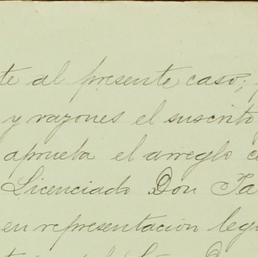 te al presente caso;
y razones el suscrito
aprueba el arreglo
Licenciado Don
en representación